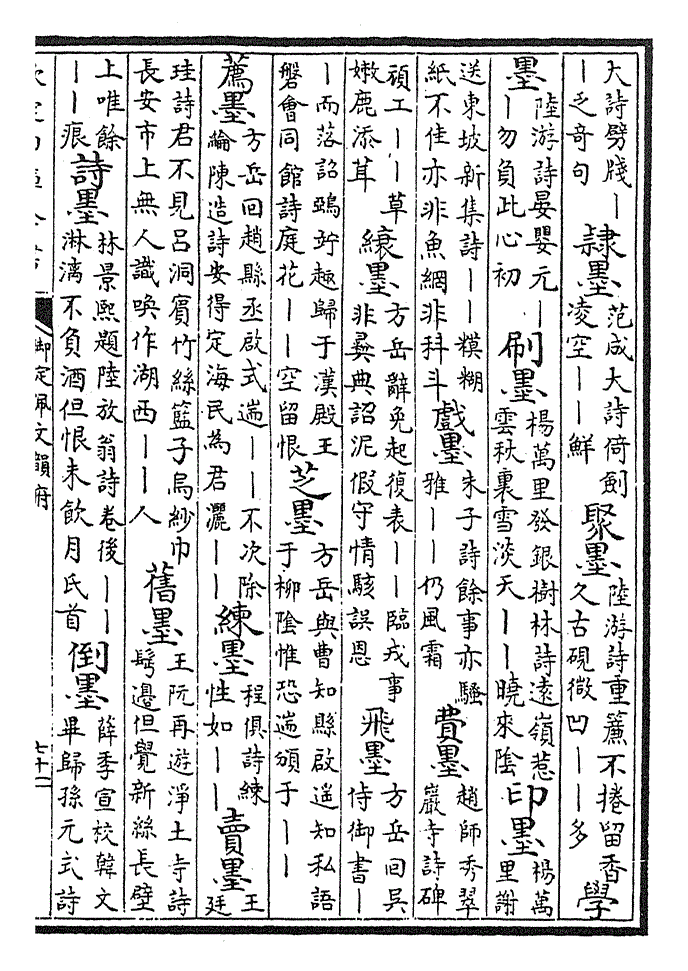 大詩劈牋｜｜乏奇句 隷墨 范成大詩倚劍凌空｜｜鮮 聚墨 陸游詩重簾不捲留香久古硯微凹｜｜多 學
墨 陸游詩晏嬰元｜｜勿負此心初 刷墨 楊萬里發銀樹林詩遠嶺惹雲秋裏雪淡天｜｜曉來陰 印墨 楊萬里謝
送東坡新集詩｜｜糢糊紙不佳亦非魚網非科斗 戲墨 朱子詩餘事亦騷雅｜｜仍風霜 費墨 趙師秀翠巖寺詩碑
頑工｜｜草嫩鹿添茸 縗墨 方岳辭免起復表｜｜臨戎事非彜典詔泥假守情駭誤恩 飛墨 方岳回吳侍御書｜
｜而落詔鵶竚趣歸于漢殿王磐會同館詩庭花｜｜空留恨 芝墨 方岳與曹知縣啟遥知私語于柳陰惟恐遄頒于｜｜
薦墨 方岳回趙縣丞啟式遄｜｜不次除綸陳造詩安得定海民為君灑｜｜ 練墨 程俱詩練性如｜｜ 賣墨 王廷
珪詩君不見呂洞賓竹絲籃子烏紗巾長安市上無人識喚作湖西｜｜人 舊墨 王阮再遊淨土寺詩鬂邊但覺新絲長壁
上唯餘｜｜痕 詩墨 林景熙題陸放翁詩卷後｜｜淋漓不負酒但恨未飲月氏首 倒墨 薛季宣校韓文畢歸孫元式詩
御定佩文韻府 七十二